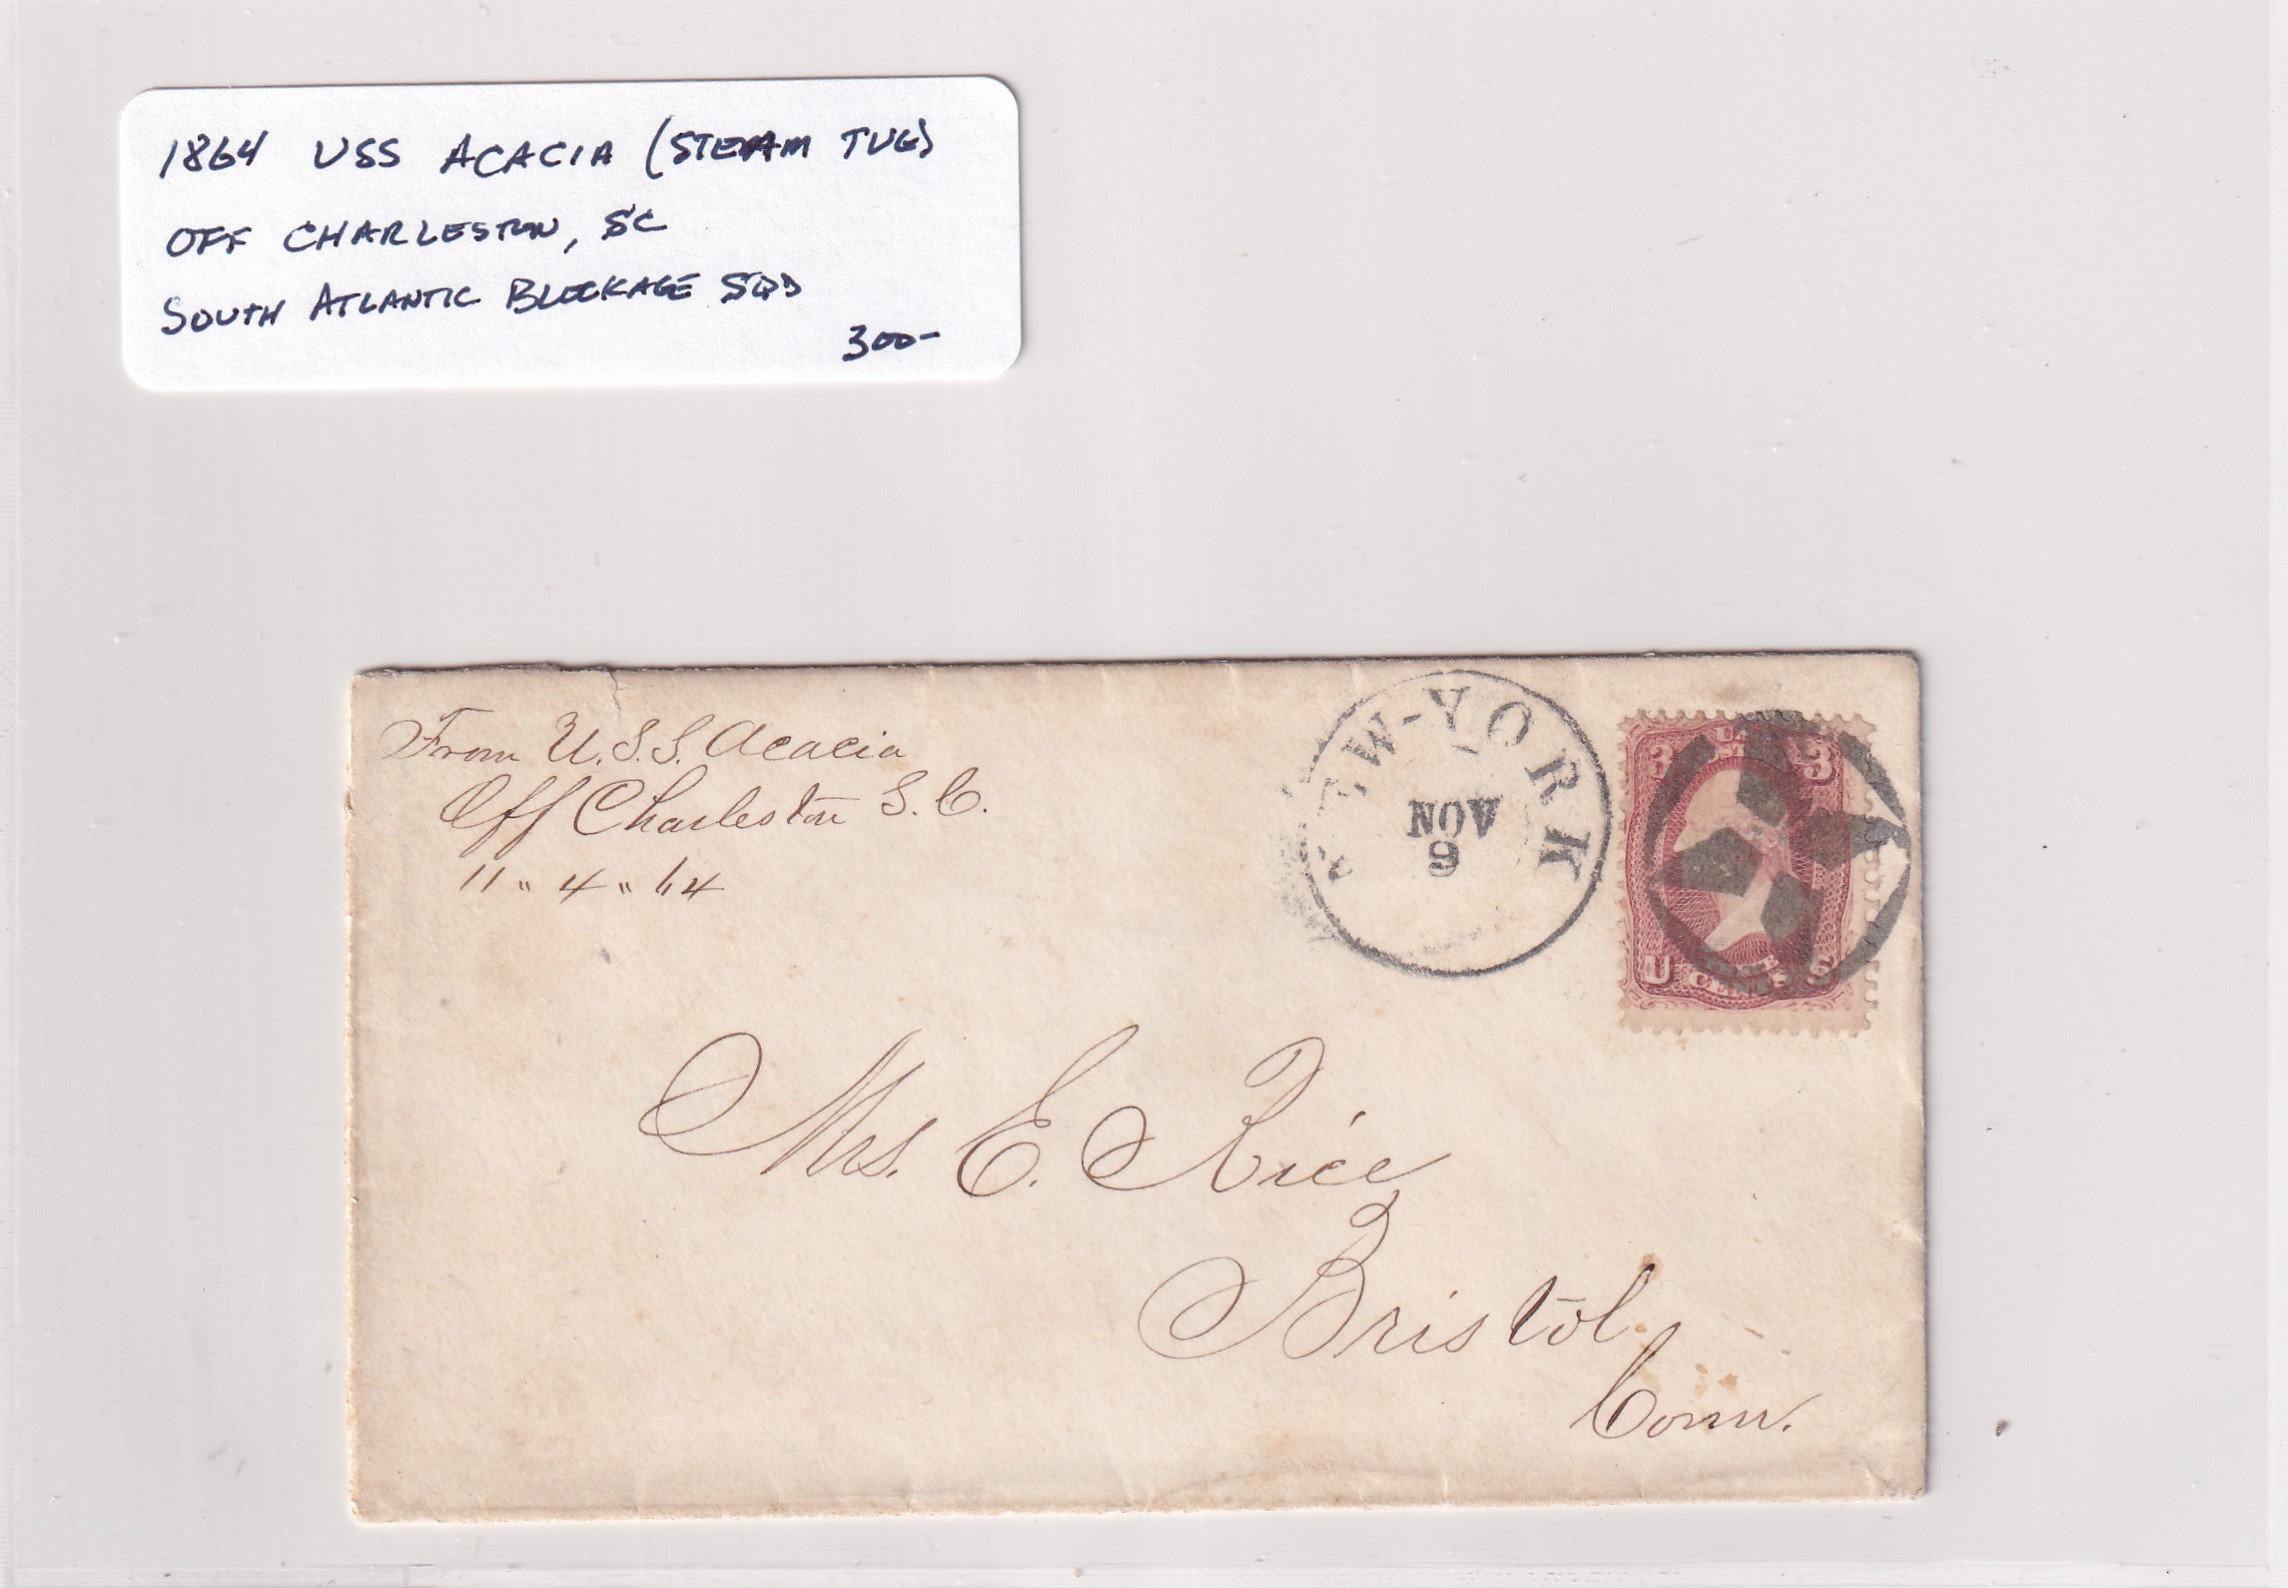 1864 USS ACACIA (STEAM TUG)
OFF CHARLESTON, SC
SOUTH ATLANTIC BLOCKAGE SQD
300-
From U.S.S. Acacia
Off Charleston S.C.
11 " 4 " 64
NEW-YORK
NOV
9
U
3 3
U CENTS S
Mrs. E. Rice
Bristol
Conn.